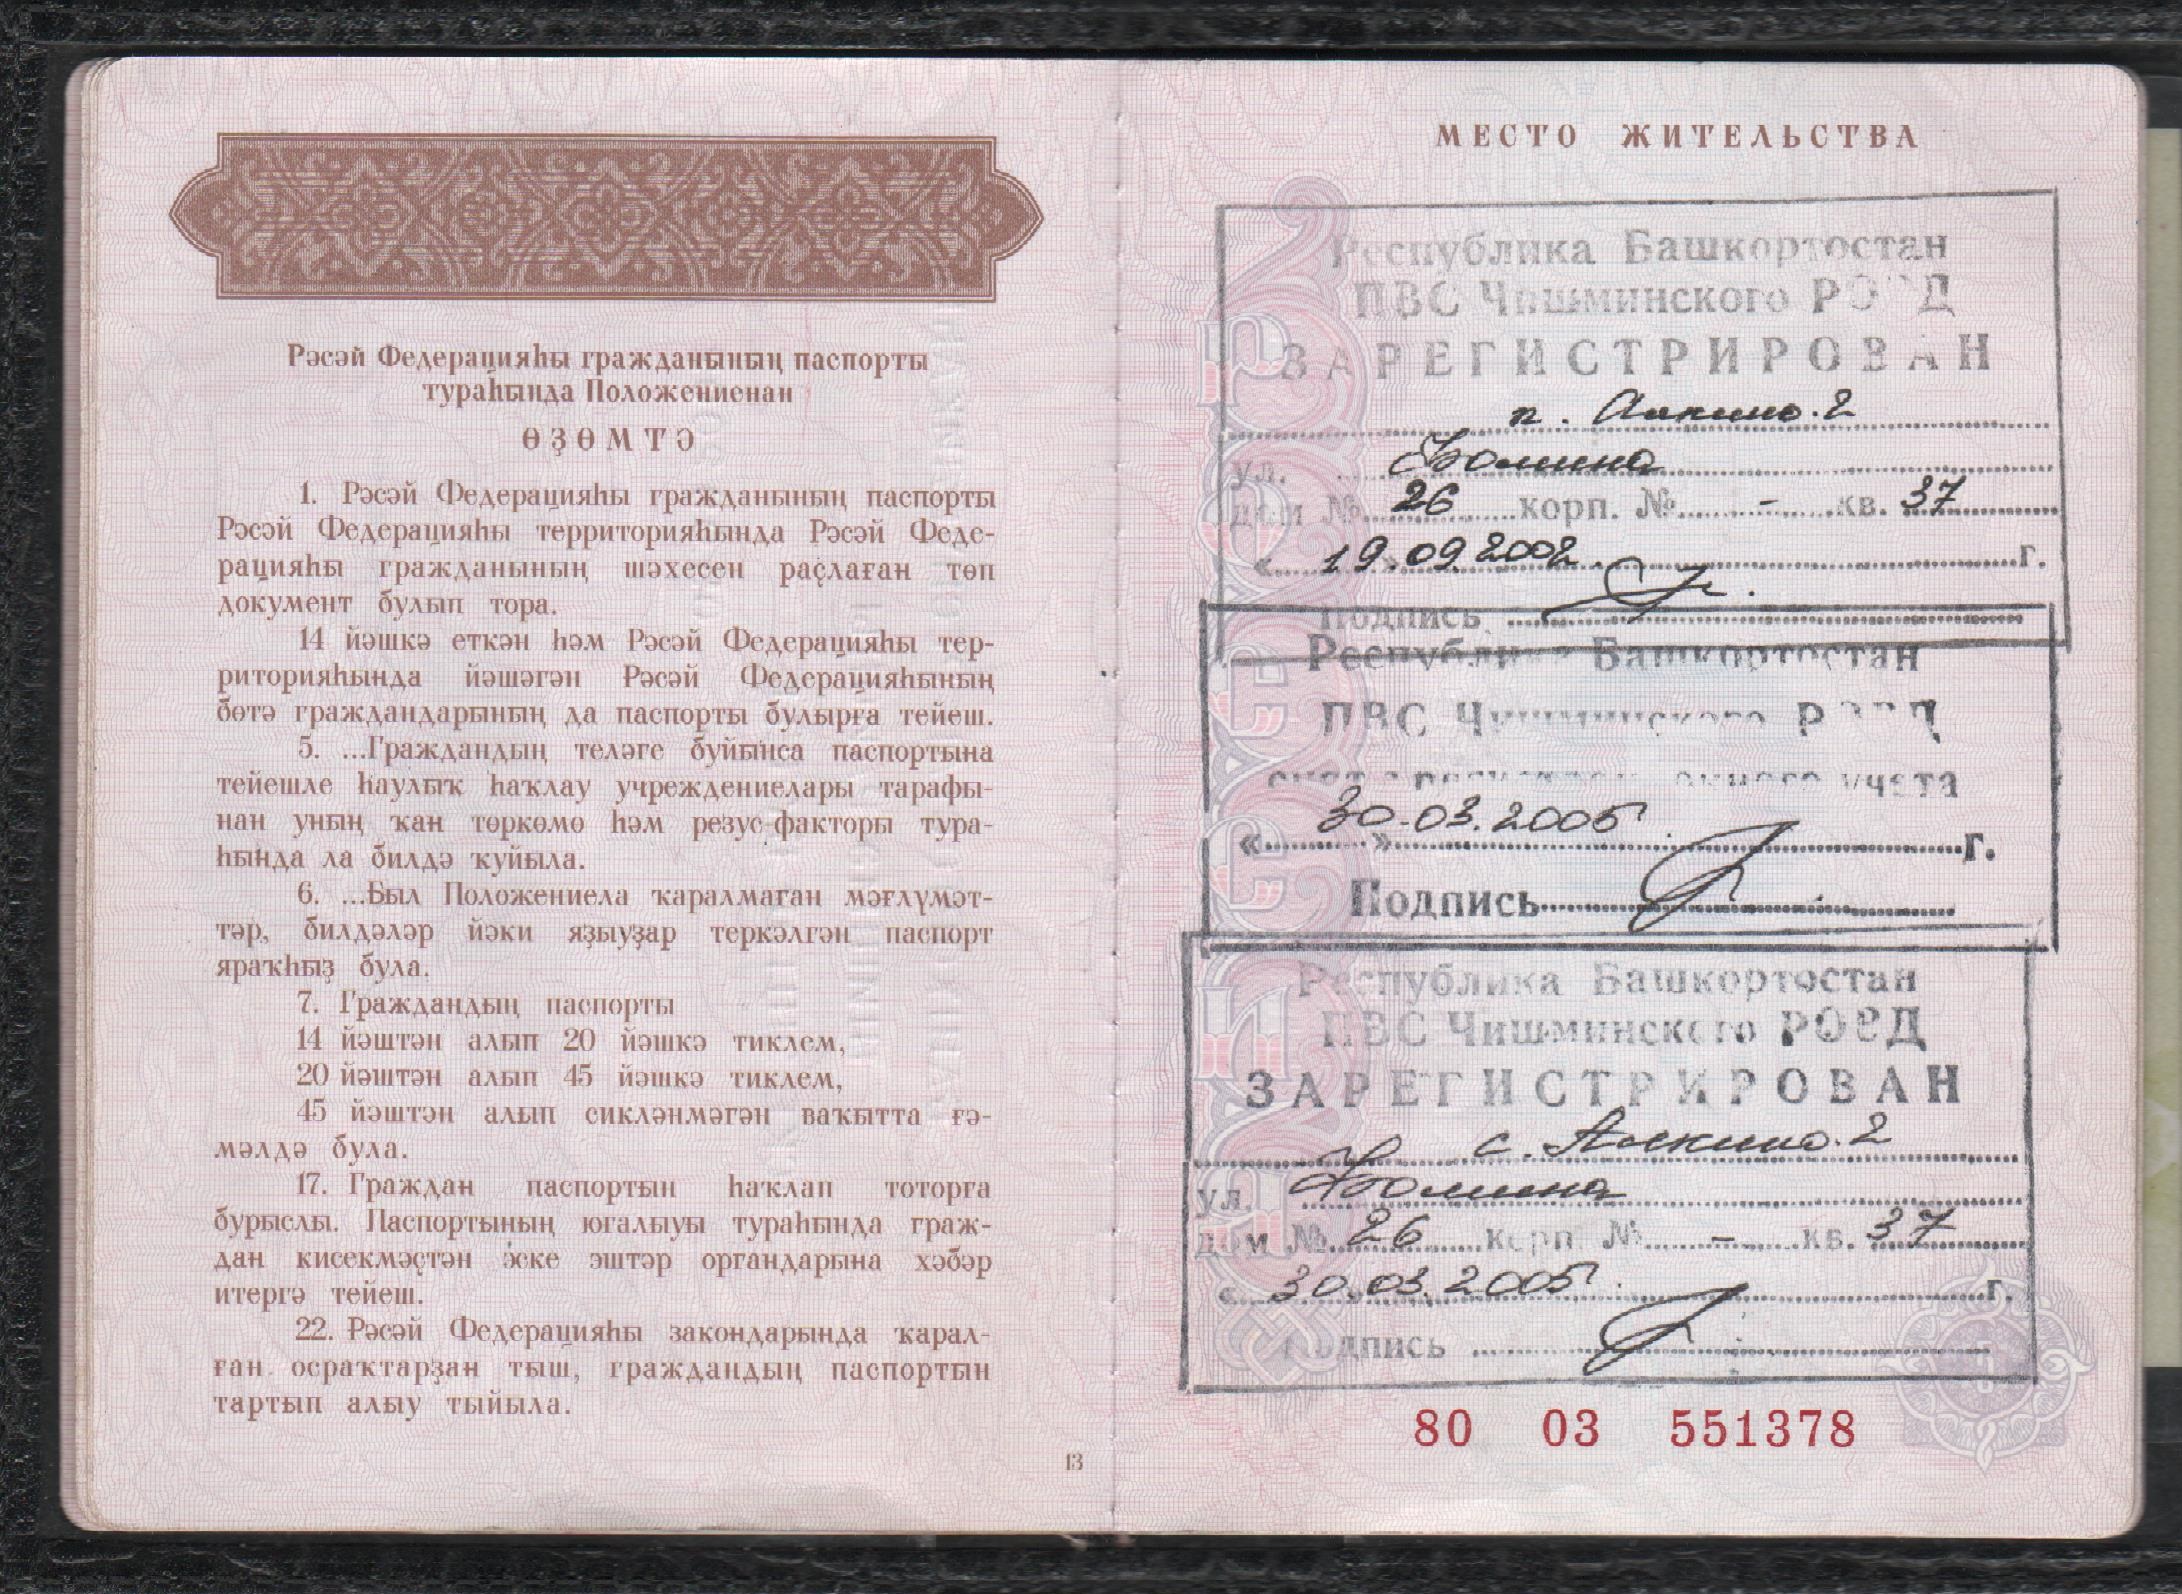 Рәсәй Федерацияһы гражданының паспорты
тураһында Положениенан
ӨҘӨМТӘ
1. Рәсәй Федерацияһы гражданының паспорты
Рәсәй Федерацияһы территорияһында Рәсәй Феде-
рацияһы гражданының шәхесен раҫлаған төп
документ булып тора.
14 йәшкә еткән һәм Рәсәй Федерацияһы тер-
риторияһында йәшәгән Рәсәй Федерацияһының
бөтә граждандарының да паспорты булырға тейеш.
5. ...Граждандың теләге буйынса паспортына
тейешле һаулыҡ һаҡлау учреждениелары тарафы-
нан уның ҡан төркөмө һәм резус-факторы тура-
һында ла билдә ҡуйыла.
6. ...Был Положениела ҡаралмаған мәғлүмәт-
тәр, билдәләр йәки яҙыуҙар теркәлгән паспорт
яраҡһыҙ була.
7. Граждандың паспорты
14 йәштән алып 20 йәшкә тиклем,
20 йәштән алып 45 йәшкә тиклем,
45 йәштән алып сикләнмәгән ваҡытта ғә-
мәлдә була.
17. Граждан паспортын һаҡлап тоторға
бурыслы. Паспортының юғалыуы тураһында граж-
дан кисекмәҫтән эске эштәр органдарына хәбәр
итергә тейеш.
22. Рәсәй Федерацияһы закондарында ҡарал-
ған осраҡтарҙан тыш, граждандың паспортын
тартып алыу тыйыла.
13
МЕСТО ЖИТЕЛЬСТВА
Республика Башкортостан
ПВС Чишминского РОВД
ЗАРЕГИСТРИРОВАН
п. Алкино-2
ул.
дом № 26 корп. № - кв. 37
« 19.09.2002 г.
Подпись
Республика Башкортостан
ПВС Чишминского РОВД
снят с регистрационного учета
« 30.03.2005 » г.
Подпись
Республика Башкортостан
ПВС Чишминского РОВД
ЗАРЕГИСТРИРОВАН
с. Алкино-2
ул.
дом № 26 корп. № - кв. 37
« 30.03.2005 г.
Подпись
80 03 551378